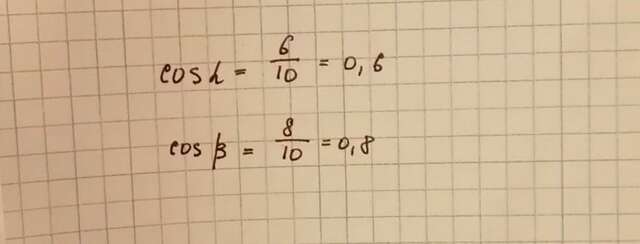 cos α = 6/10 = 0,6
cos β = 8/10 = 0,8